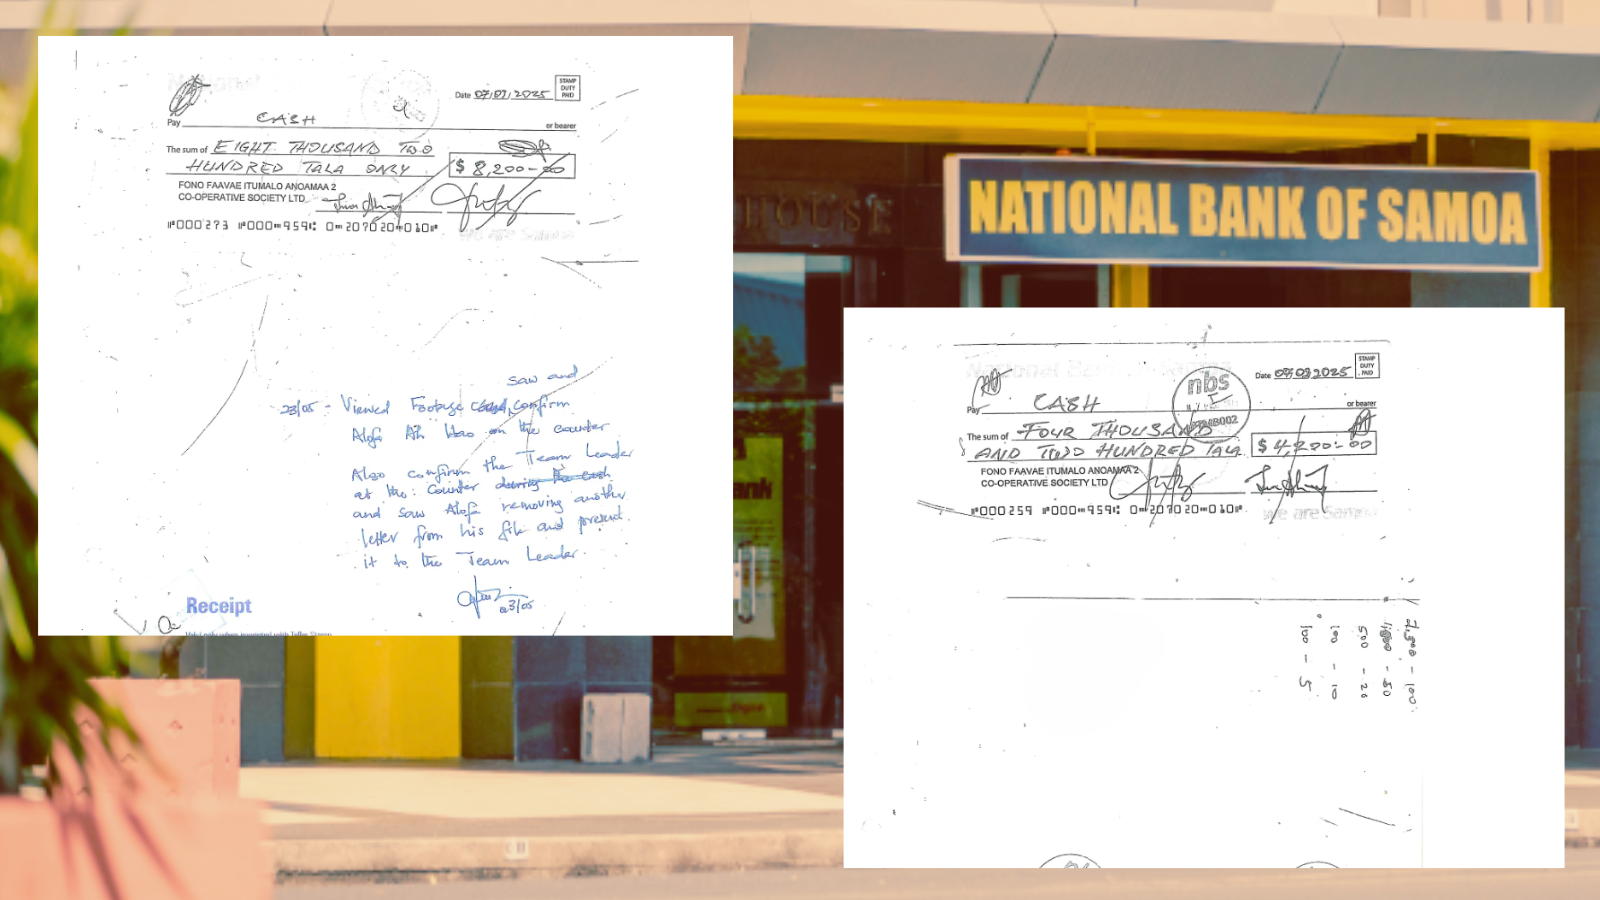 National
Date 07/07/2025
STAMP
DUTY
PAID
Pay CASH or bearer
The sum of EIGHT THOUSAND TWO
HUNDRED TALA ONLY $ 8,200-00
FONO FAAVAE ITUMALO ANOAMAA 2
CO-OPERATIVE SOCIETY LTD
⑈000273 ⑈000⑉959⑆ 0⑉207020⑉010⑈
We are Samoa
saw and
23/05 - Viewed Footage confirm
Alofa Ah Hao on the counter
Also confirm the Team Leader
at the counter during the cash
and saw Alofa removing another
letter from his file and present
it to the Team Leader.
23/05
Receipt
HOUSE
NATIONAL BANK OF SAMOA
National Bank
nbs
Date
STAMP
DUTY
PAID
Pay CASH or bearer
The sum of FOUR THOUSAND
AND TWO HUNDRED TALA $ 4,200-00
FONO FAAVAE ITUMALO ANOAMAA 2
CO-OPERATIVE SOCIETY LTD
⑈000259 ⑈000⑉959⑆ 0⑉207020⑉010⑈
we are Samoa
- 100
- 50
500 - 20
100 - 10
100 - 5